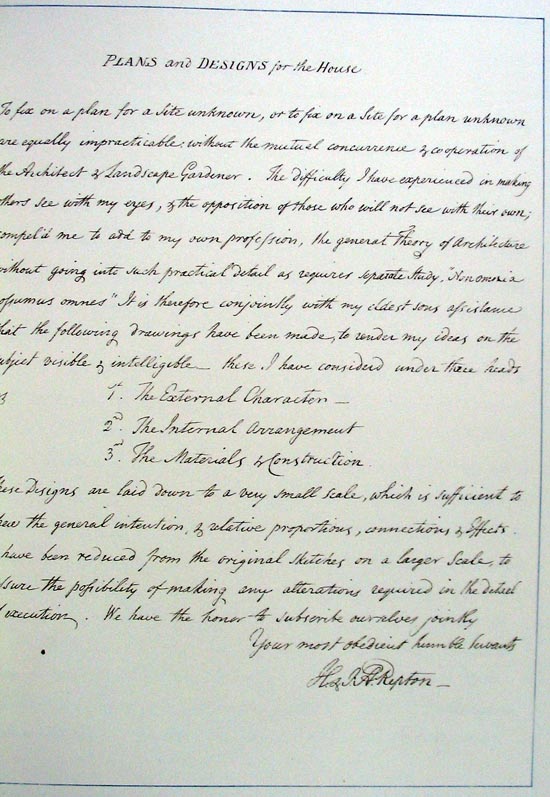 PLANS and DESIGNS for the House
To fix on a plan for a Site unknown, or to fix on a Site for a plan unknown
are equally impracticable; without the mutual concurrence & cooperation of
the Architect & Landscape Gardener. The difficulty I have experienced in making
thers see with my eyes, & the opposition of those who will not see with their own;
ompel'd me to add to my own profession, the general Theory of Architecture
without going into such practical detail as requires separate Study, "Non omnia
ossumus omnes" It is therefore conjointly with my eldest sons assistance
hat the following drawings have been made, to render my ideas on the
ubject visible & intelligible — these I have considerd under three heads
1st. The External Character —
2d. The Internal Arrangement
3d. The Materials & Construction.
hese Designs are laid down to a very small scale, which is sufficient to
hew the general intention, & relative proportions, connections & Effects.
have been reduced from the original sketches on a larger Scale, to
ssure the possibility of making any alterations required in the detail
execution. We have the honor to subscribe ourselves jointly
Your most obedient humble Servants
H. & J. A. Repton —